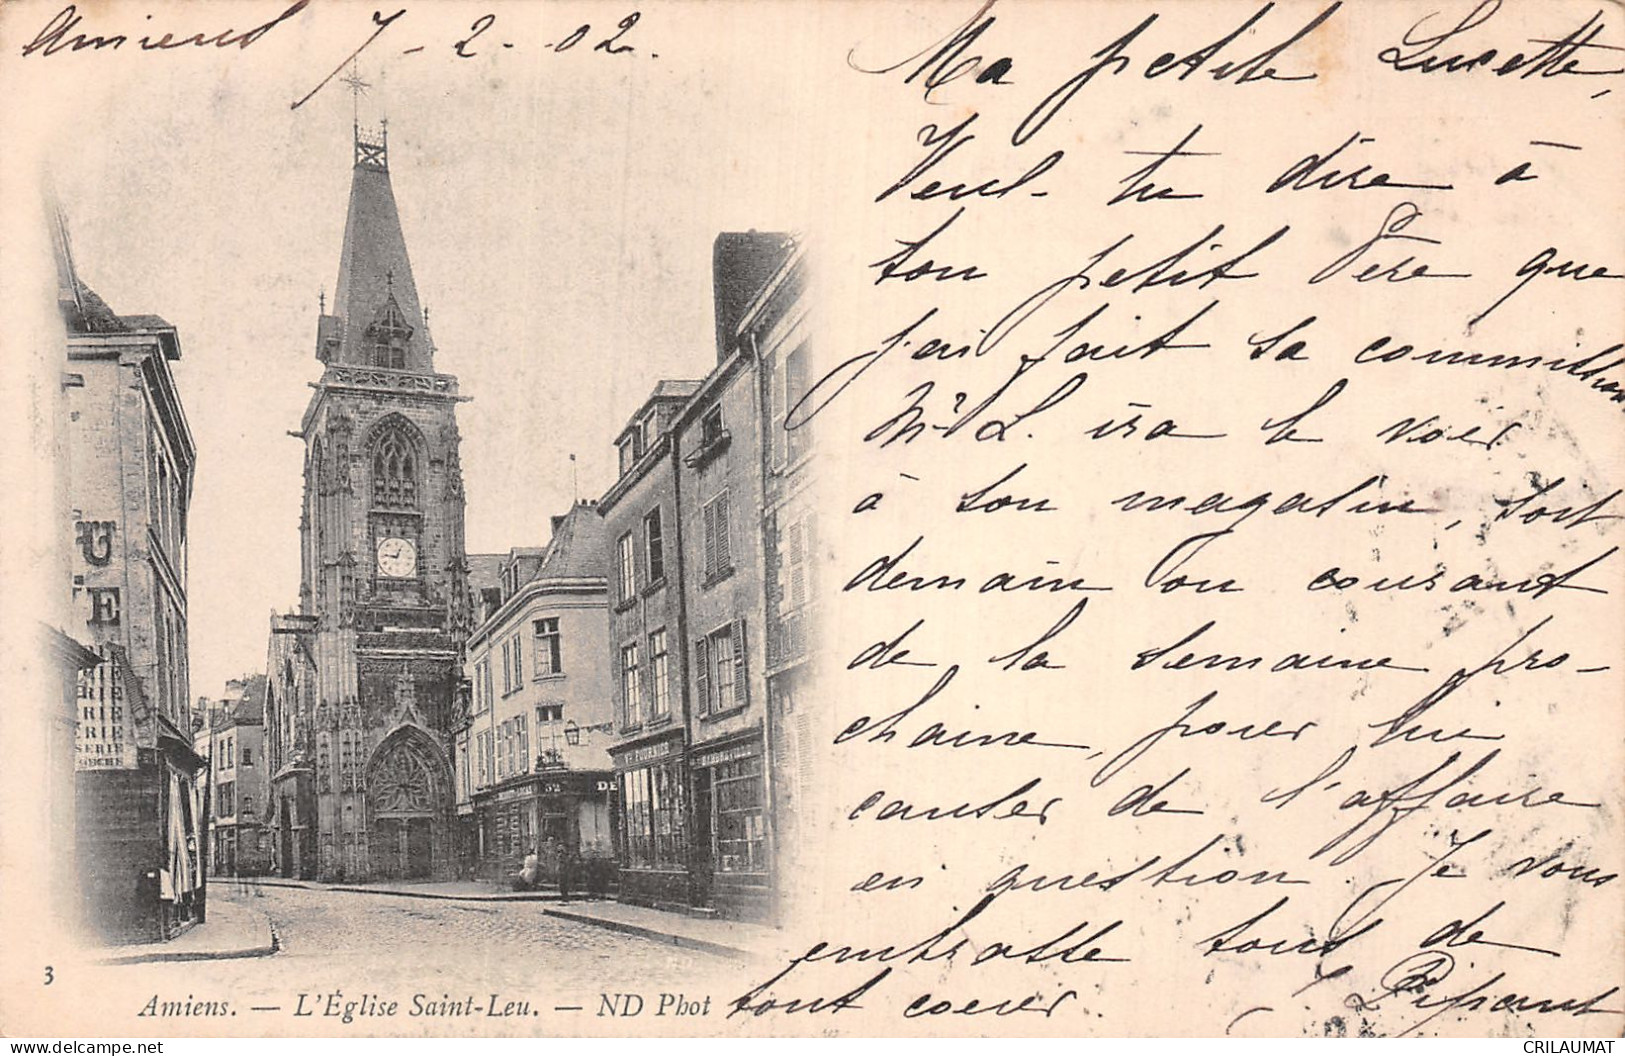 Amiens 7-2-02.
Ma petite Lucette,
Veux-tu dire à
ton petit Père que
j'ai fait sa commission
Mr L. ira le voir
à son magasin, soit
demain ou courant
de la semaine pro-
chaine, pour lui
causer de l'affaire
en question. Je vous
embrasse tous de
tout coeur.
U
IE
ERIE
SERIE
Vve FOURNIER
52
DE
3
Amiens. — L'Église Saint-Leu. — ND Phot
CRILAUMAT